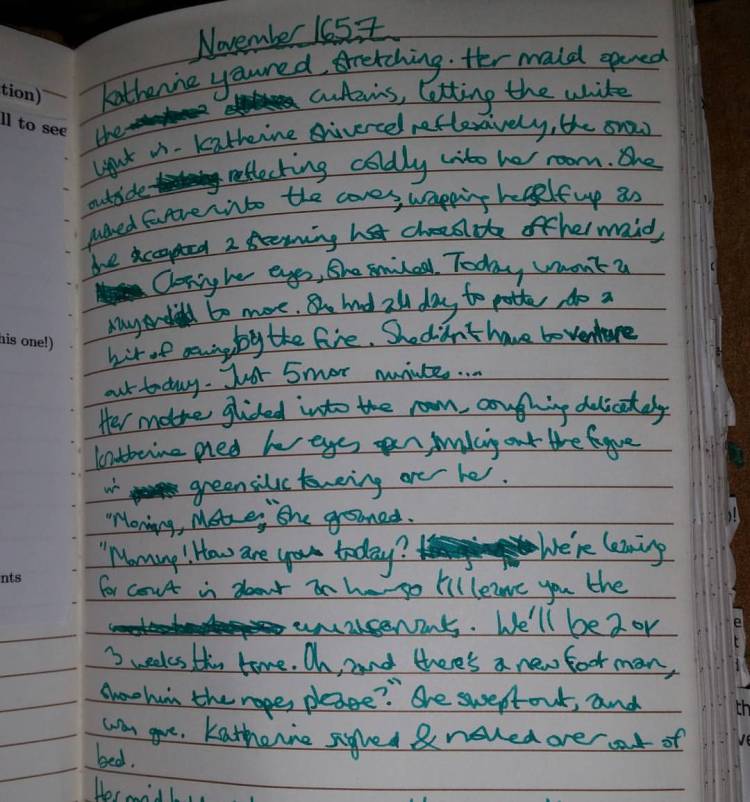 tion)
ll to see
his one!)
nts
November 1657
Katherine yawned, stretching. Her maid opened
the curtains, letting the white
light in. Katherine shivered reflexively, the snow
outside reflecting coldly into her room. She
pushed further into the covers, wrapping herself up as
she accepted a steaming hot chocolate off her maid,
Closing her eyes, she smiled. Today wasn't a
to move. She had all day to potter, do a
bit of sewing by the fire. She didn't have to venture
out today. Just 5 more minutes...
Her mother glided into the room, coughing delicately.
Katherine pried her eyes open, making out the figure
in green silk towering over her.
"Morning, Mother," she groaned.
"Morning! How are you today? We're leaving
for court in about an hour so I'll leave you the
servants. We'll be 2 or
3 weeks this time. Oh, and there's a new footman,
show him the ropes please?" She swept out, and
was gone. Katherine sighed & rolled over out of
bed.
Her